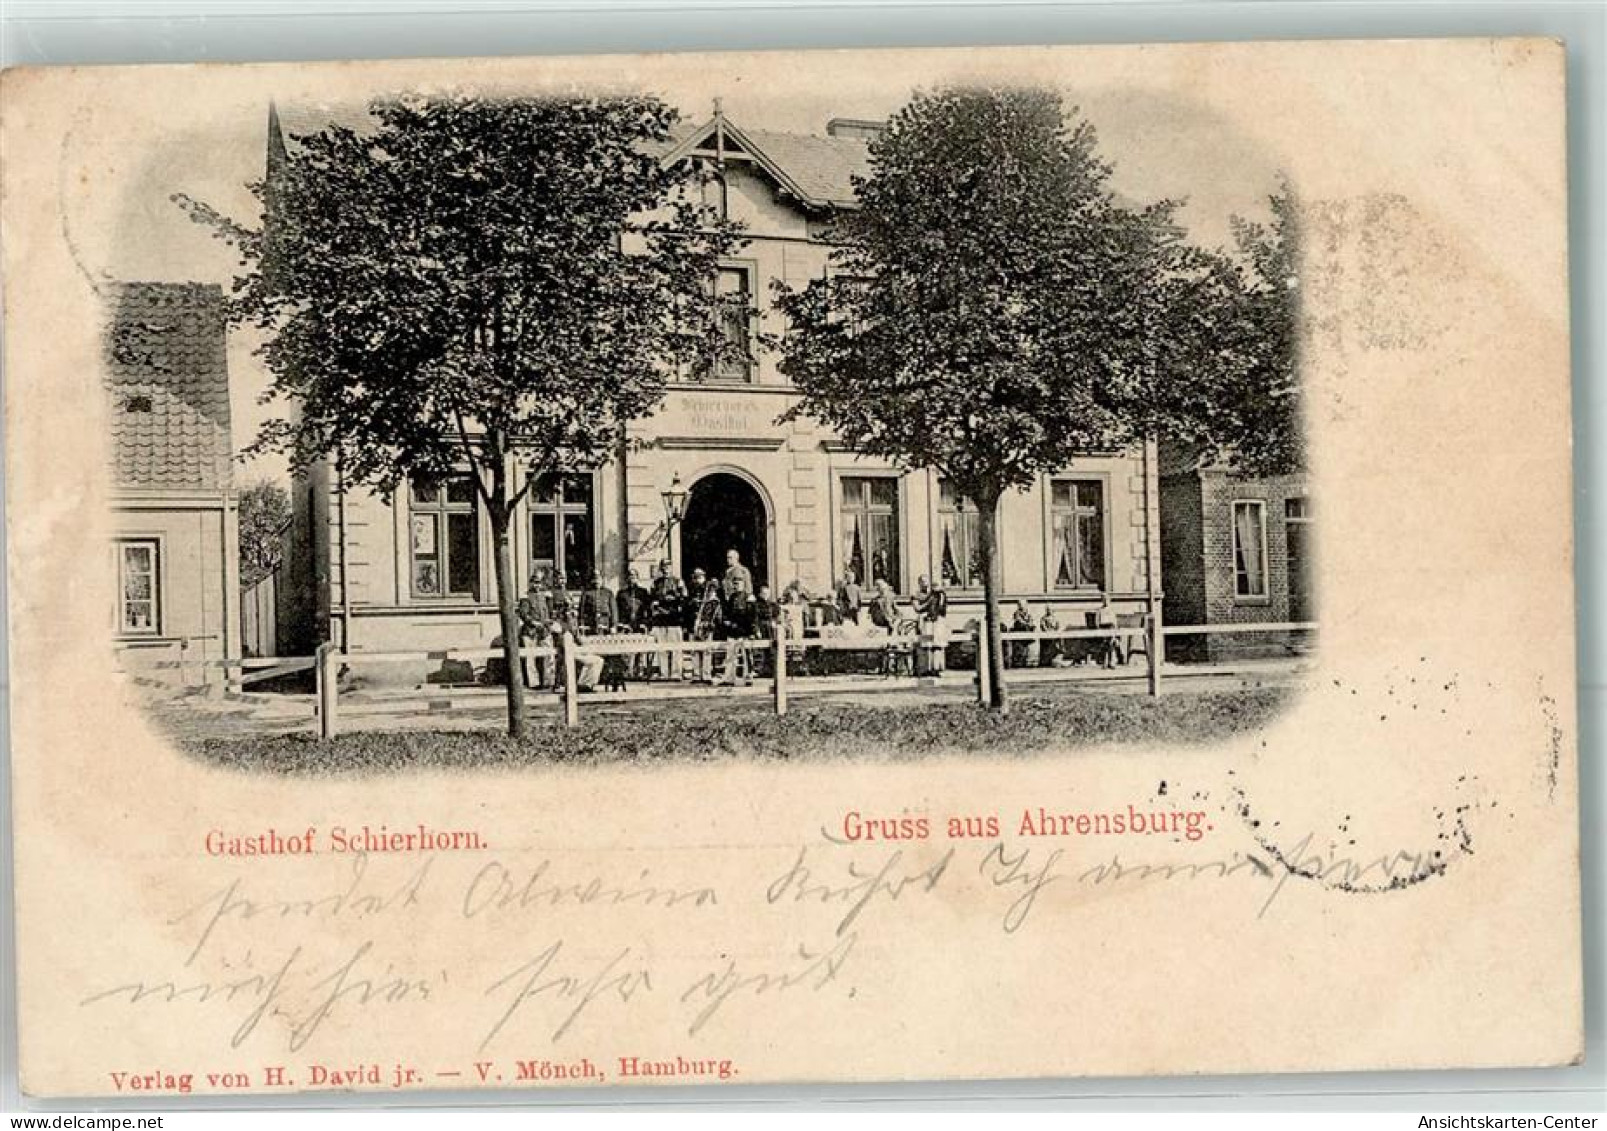 Schierhorn's
Gasthof
Gasthof Schierhorn.
Gruss aus Ahrensburg.
sendet Alwine Ruhrt Ich amüsiere
mich hier sehr gut.
Verlag von H. David jr. — V. Mönch, Hamburg.
Ansichtskarten-Center